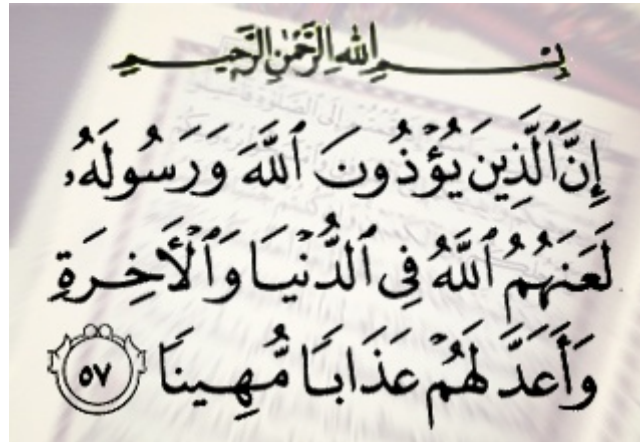 بِسْمِ اللهِ الرَّحْمٰنِ الرَّحِيمِ
إِنَّ ٱلَّذِينَ يُؤْذُونَ ٱللَّهَ وَرَسُولَهُۥ
لَعَنَهُمُ ٱللَّهُ فِي ٱلدُّنْيَا وَٱلْأَخِرَةِ
وَأَعَدَّ لَهُمْ عَذَابًا مُّهِينًا ٥٧